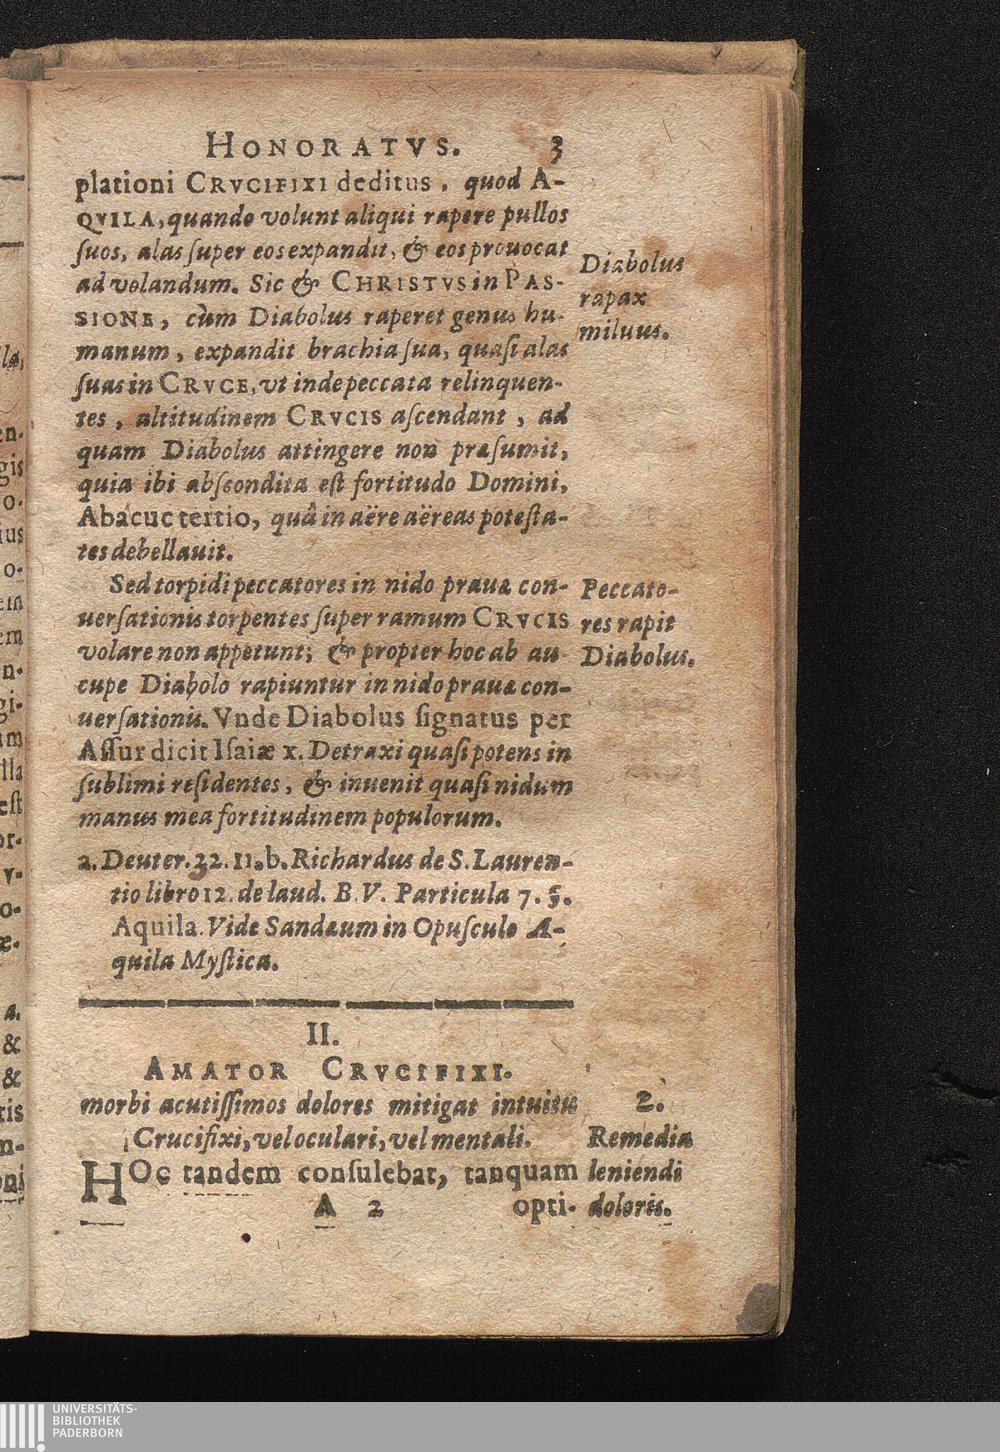 HONORATVS. 3
plationi CRVCIFIXI deditus, quod A-
QVILA, quando volunt aliqui rapere pullos
ſuos, alas ſuper eos expandit, & eos prouocat
ad volandum. Sic & CHRISTVS in PAS-
SIONE, cùm Diabolus raperet genus hu-
manum, expandit brachia ſua, quaſi alas
ſuas in CRVCE, vt inde peccata relinquen-
tes, altitudinem CRVCIS aſcendant, ad
quam Diabolus attingere non præſumit,
quia ibi abſcondita eſt fortitudo Domini,
Abacuc tertio, quâ in aëre aëreas poteſta-
tes debellauit.
Diabolus
rapax
miluus.
Sed torpidi peccatores in nido prauæ con-
uerſationis torpentes ſuper ramum CRVCIS
volare non appetunt; & propter hoc ab au
cupe Diabolo rapiuntur in nido prauæ con-
uerſationis. Vnde Diabolus ſignatus per
Aſſur dicit Iſaiæ x. Detraxi quaſi potens in
ſublimi reſidentes, & inuenit quaſi nidum
manus mea fortitudinem populorum.
Peccato-
res rapit
Diabolus.
a. Deuter. 32. 11. b. Richardus de S. Lauren-
tio libro 12. de laud. B. V. Particula 7. §.
Aquila. Vide Sandæum in Opuſculo A-
quila Myſtica.
II.
AMATOR CRVCIFIXI.
morbi acutiſſimos dolores mitigat intuitu
Crucifixi, vel oculari, vel mentali.
HOc tandem conſulebat, tanquam
A 2 opti-
2.
Remedia
leniendi
doloris.
UNIVERSITÄTS-
BIBLIOTHEK
PADERBORN